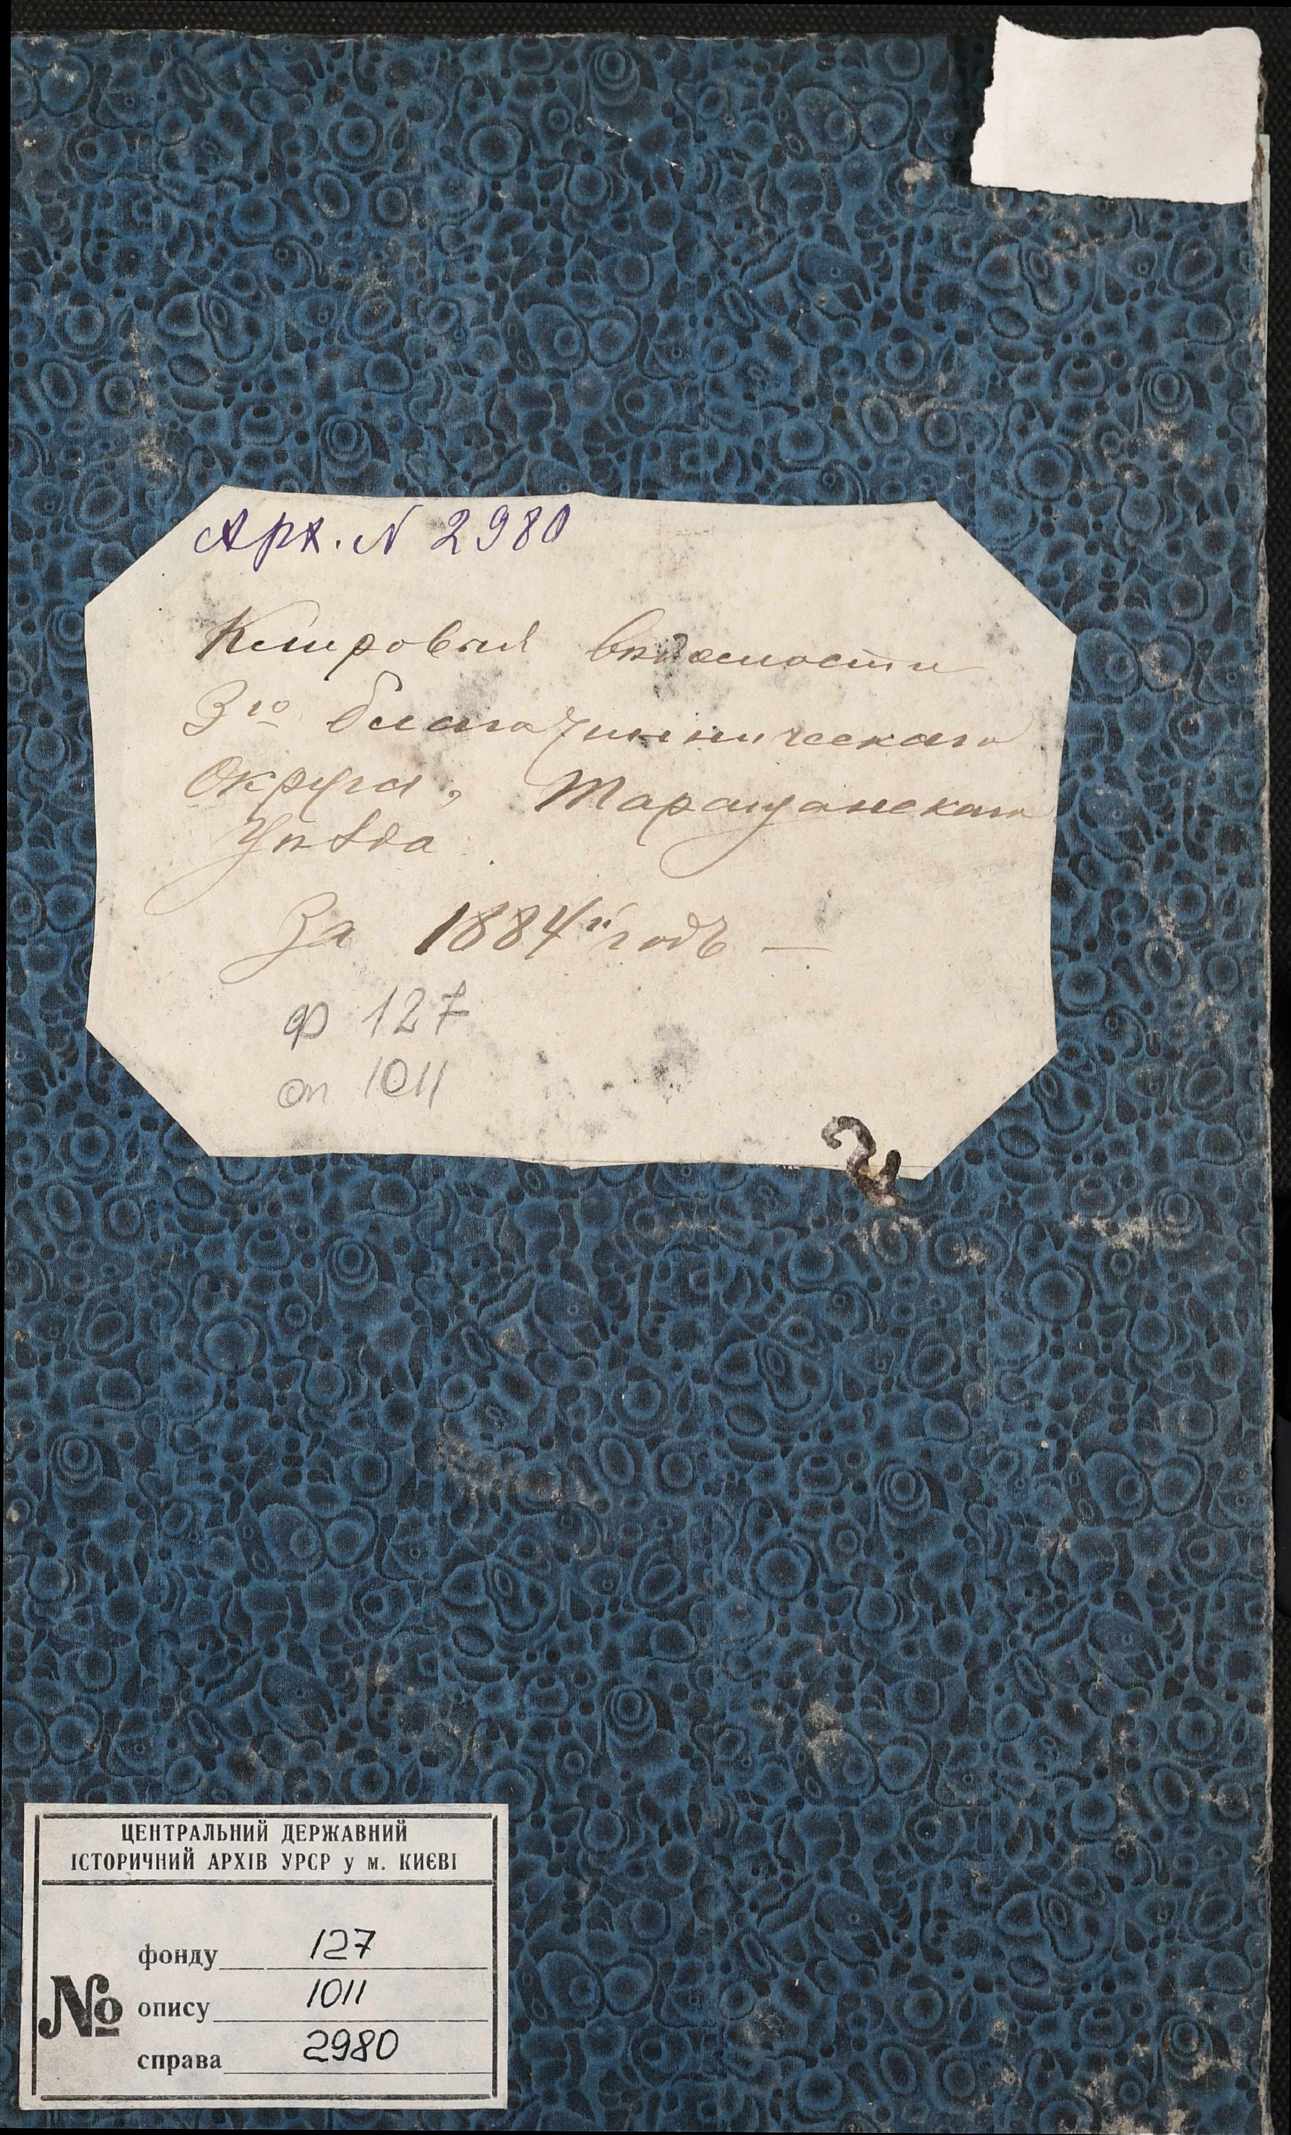 Арх. N 2980
Клировыя ведомости
3го благочинническаго
Округа, Таращанскаго
Уѣзда
За 1884й годъ —
ф 127
оп 1011
ЦЕНТРАЛЬНИЙ ДЕРЖАВНИЙ
ІСТОРИЧНИЙ АРХІВ УРСР у м. КИЄВІ
№
фонду 127
опису 1011
справа 2980